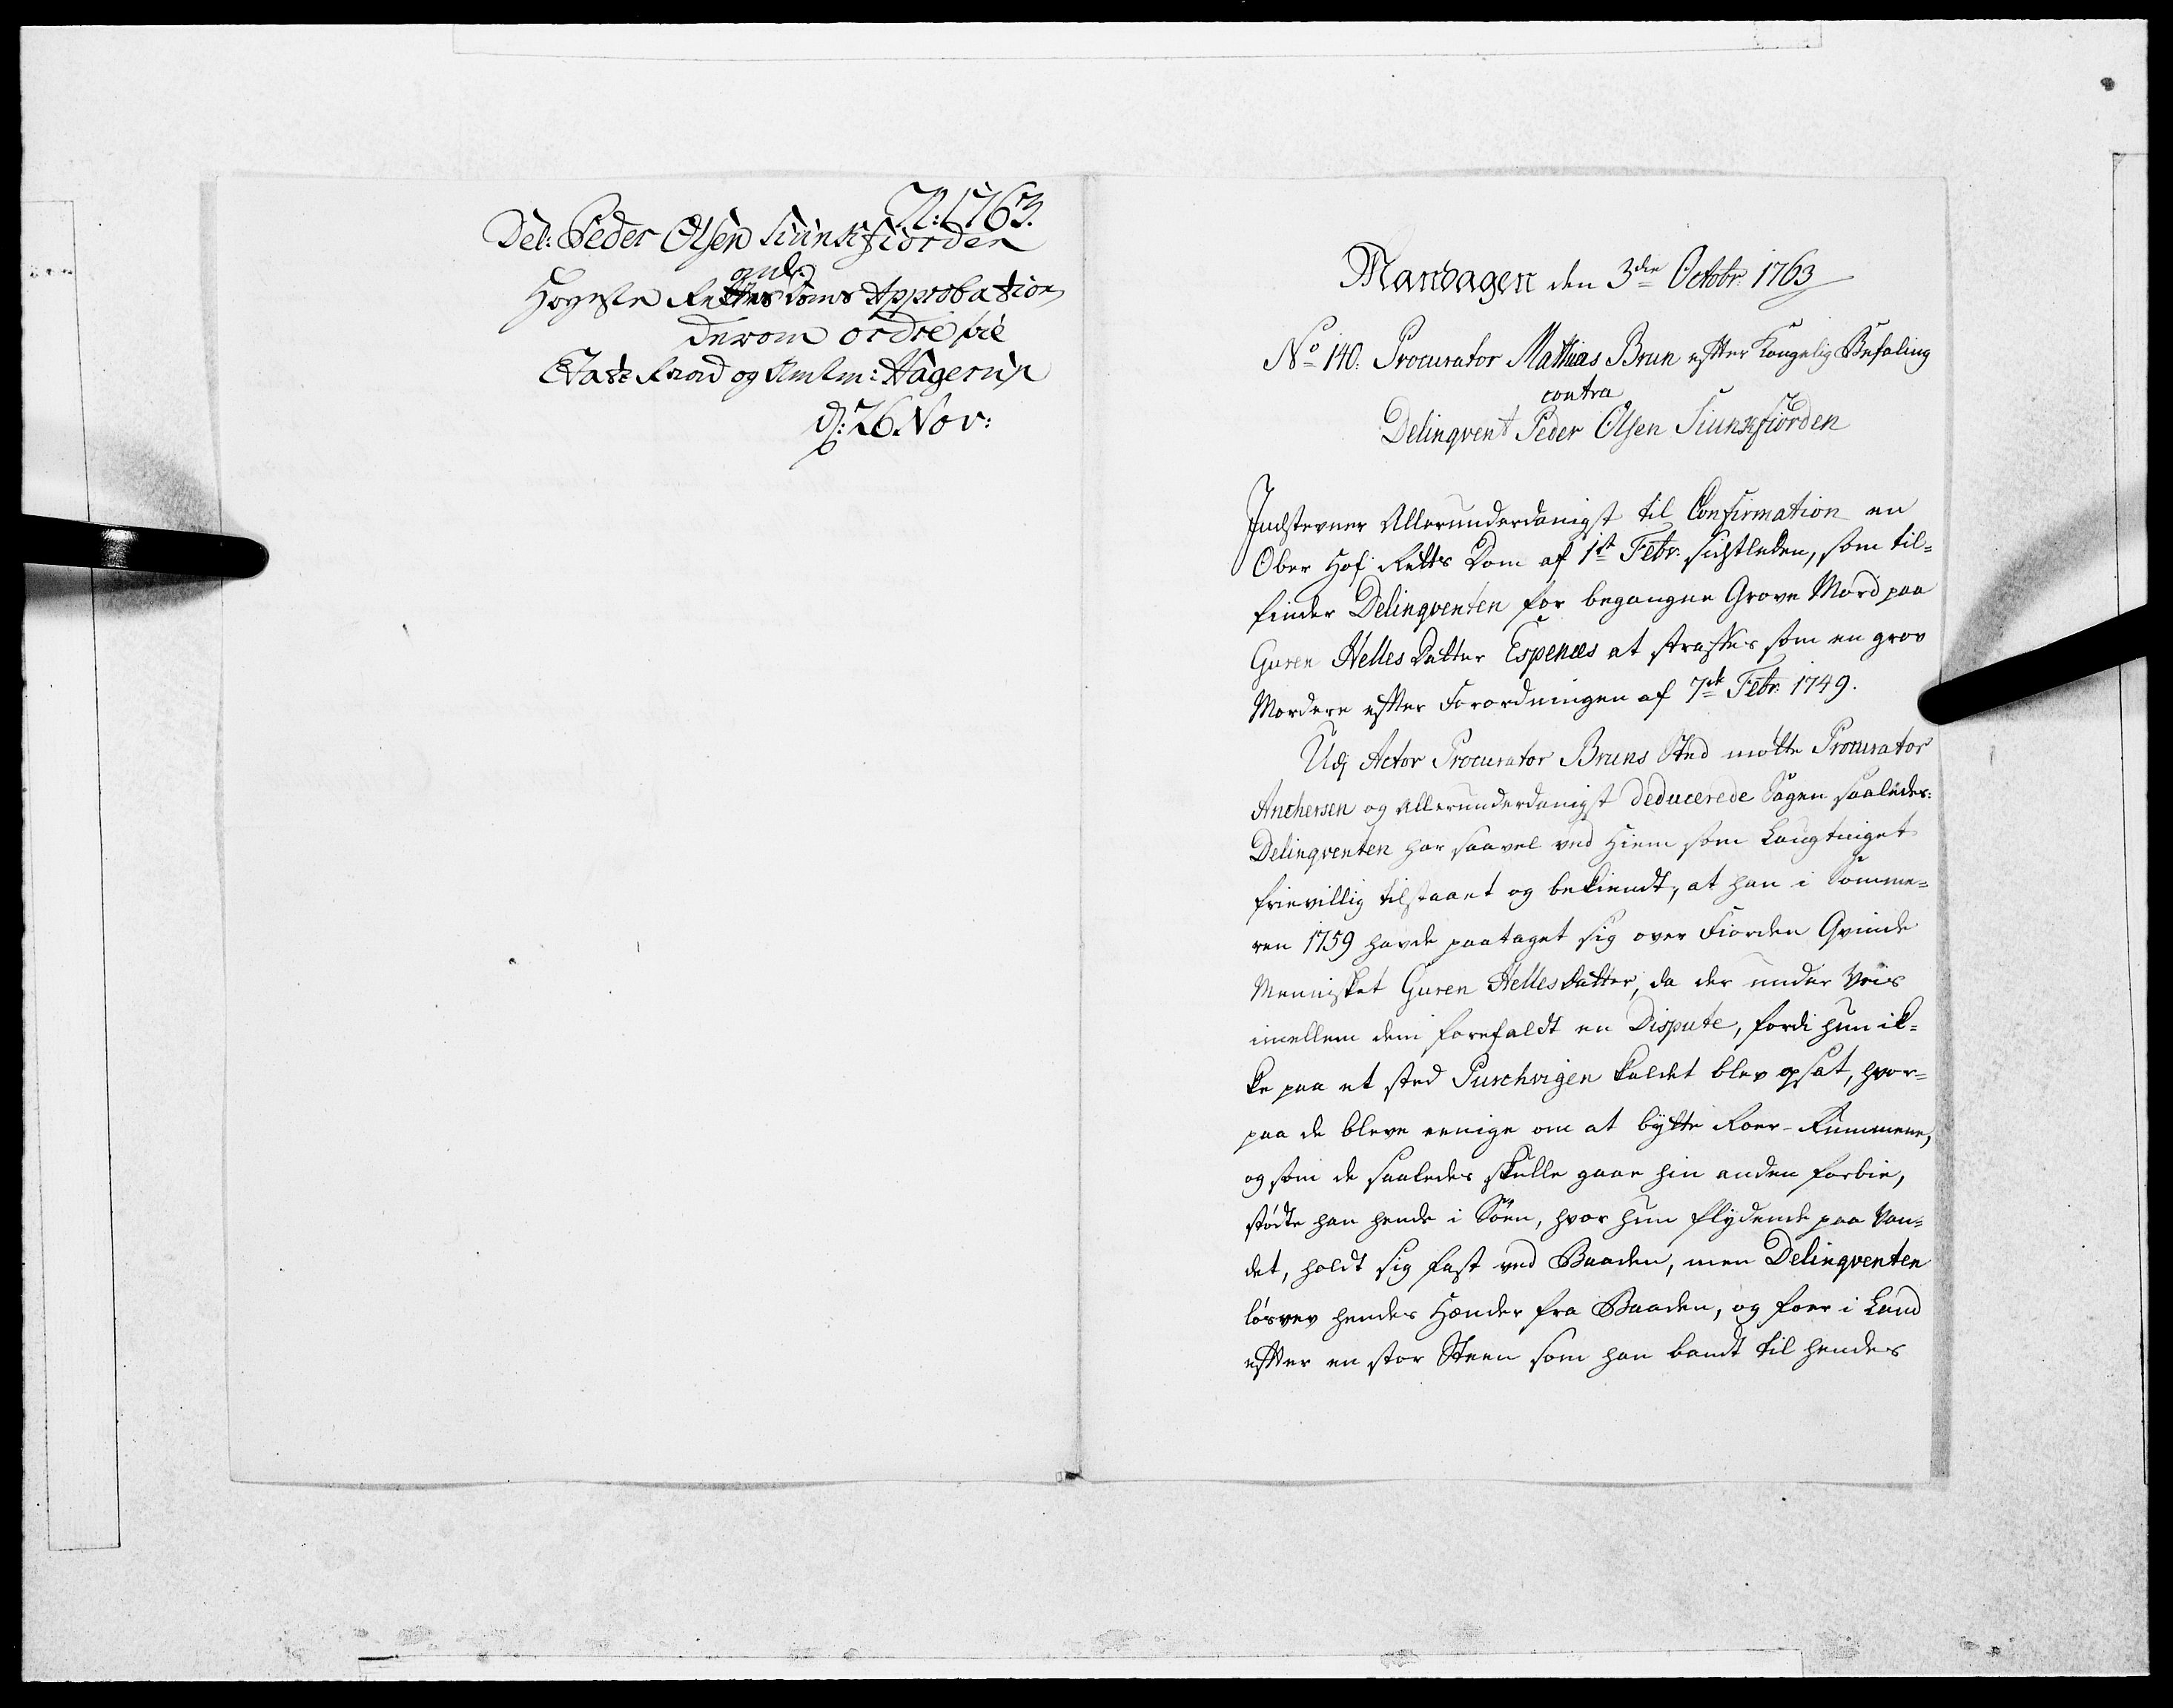 N: 1763.
Del: Peder Olsen Siunkfiorden
ang:
Høyeste Rettes Doms Approbation
derom ordre til
Etats Raad og Amtm: Hagerup
d: 26 Nov:
Mandagen den 3die Octobr. 1763
No 140. Procurator Mathias Brun efter Kongelig Befaling
contra
Delinqvent Peder Olsen Siunkfiorden
Indstevner Allerunderdanigst til Confirmation en
Ober Hof Retts Dom af 1ste Febr. sidstleden, som til-
finder Delinqventen for begangne Grove Mord paa
Guren Helles Datter Espenes at straffes som en grov
Mordere efter Forordningen af 7de Febr. 1749.
Udj Actor Procurator Bruns Sted mötte Procurator
Anchersen og allerunderdanigst deducerede Sagen saaledes:
Delinqventen har saavel ved Hiem som Laugtinget
frievillig tilstaaet og bekiendt, at han i Somme-
ren 1759 havde paataget sig over Fiorden Qvinde
Mennisket Guren Hellesdatter, da der under Veis
imellem dem forefaldt en Dispute, fordi hun ik-
ke paa et sted Puschvigen kaldet blev opsat, hvor-
paa de bleve eenige om at bytte Roer-Rummene,
og som de saaledes skulle gaae hin anden forbie,
stödte han hende i Söen, hvor hun flydende paa Van-
det, holdt sig fast ved Baaden, men Delinqventen
lösrev hendes Hænder fra Baaden, og foer i Land
efter en stor Steen som han bandt til hendes